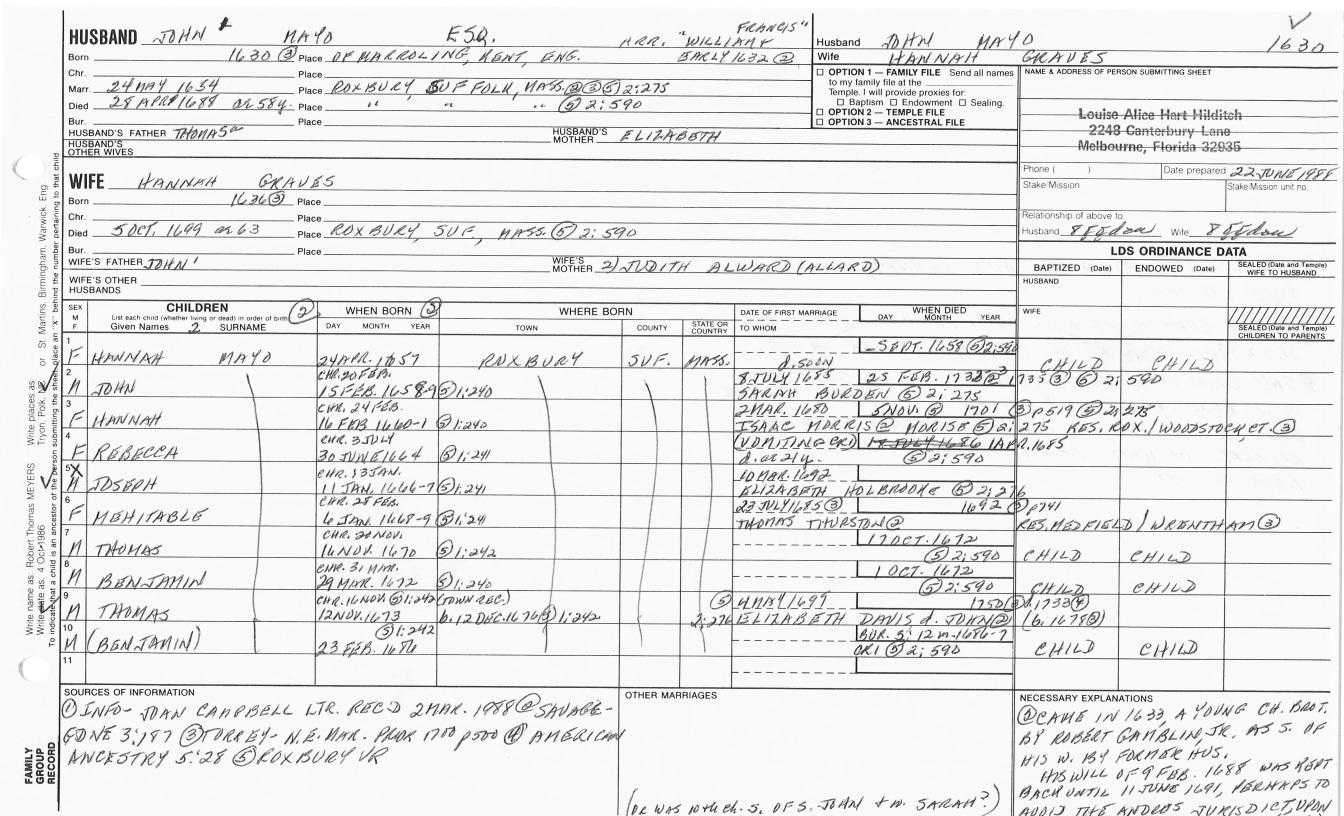 HUSBAND JOHN MAYO ESQ. ARR. "WILLIAM FRANCIS"
Born 1630 ③ Place OF MARROLING, KENT, ENG. EARLY 1632 ②
Chr. Place
Marr. 24 MAY 1654 Place ROXBURY, SUFFOLK, MASS. ②③⑤ 2:275
Died 28 APR 1688 Place " " " ⑤ 2:590
Bur. Place
HUSBAND'S FATHER THOMAS HUSBAND'S MOTHER ELIZABETH
HUSBAND'S OTHER WIVES
Husband JOHN MAYO 1630
Wife HANNAH GRAVES
☐ OPTION 1 — FAMILY FILE Send all names
to my family file at the
Temple. I will provide proxies for:
☐ Baptism ☐ Endowment ☐ Sealing.
☐ OPTION 2 — TEMPLE FILE
☐ OPTION 3 — ANCESTRAL FILE
NAME & ADDRESS OF PERSON SUBMITTING SHEET
Louise Alice Hart Hilditch
2248 Canterbury Lane
Melbourne, Florida 32935
Phone ( ) Date prepared 22 JUNE 1988
Stake Mission Stake Mission unit no.
Relationship of above to
Husband 8 ggdau Wife 8 ggdau
WIFE HANNAH GRAVES
Born 1636 ③ Place
Chr. Place
Died 5 OCT. 1699 ae 63 Place ROXBURY, SUF, MASS. ⑤ 2:590
Bur. Place
WIFE'S FATHER JOHN' WIFE'S MOTHER 2) JUDITH ALWARD (ALLARD)
WIFE'S OTHER HUSBANDS
LDS ORDINANCE DATA
BAPTIZED (Date) ENDOWED (Date) SEALED (Date and Temple) WIFE TO HUSBAND
HUSBAND
WIFE
SEALED (Date and Temple) CHILDREN TO PARENTS
SEX M F
CHILDREN ②
List each child (whether living or dead) in order of birth
Given Names 2 SURNAME
WHEN BORN ③
DAY MONTH YEAR
WHERE BORN
TOWN COUNTY STATE OR COUNTRY
DATE OF FIRST MARRIAGE
TO WHOM
WHEN DIED
DAY MONTH YEAR
1 SEPT. 1658 ⑤ 2:590
F HANNAH MAYO 24 APR. 1657 ROXBURY SUF. MASS. d. soon CHILD CHILD
2 CHR. 20 FEB. 8 JULY 1685 25 FEB. 1733 ⑤ 2:590
M JOHN 15 FEB. 1658-9 ⑤ 1:240 SARAH BURDEN ⑤ 2:275
3 CHR. 24 FEB. 2 MAR. 1680 5 NOV. ⑤ 1701 ③ p519 ⑤ 2:275
F HANNAH 16 FEB 1660-1 ⑤ 1:240 ISAAC MORRIS ② MORISE ⑤ 2:275 RES. ROX./WOODSTOCK, CT. ③
4 CHR. 3 JULY (VOMITING 18 JULY 1686 1 APR. 1685
F REBECCA 30 JUNE 1664 ⑤ 1:241 d. ae 21 y. ⑤ 2:590
5 X CHR. 13 JAN. 10 MAR. 1692
M JOSEPH 11 JAN. 1666-7 ⑤ 1:241 ELIZABETH HOLBROOKE ⑤ 2:276
6 CHR. 28 FEB. 23 JULY 1685 ③ 1692 ③ p741
F MEHITABLE 6 JAN. 1668-9 ⑤ 1:241 THOMAS THURSTON ② RES. MEDFIELD/WRENTHAM ③
7 CHR. 20 NOV. 17 OCT. 1672
M THOMAS 16 NOV. 1670 ⑤ 1:242 ⑤ 2:590 CHILD CHILD
8 CHR. 31 MAR. 1 OCT. 1672
M BENJAMIN 29 MAR. 1672 ⑤ 1:240 ⑤ 2:590 CHILD CHILD
9 CHR. 16 NOV. ⑤ 1:242 (TOWN REC.) ⑤ 4 MAY 1699 1750 ③ 1733 ④
M THOMAS 12 NOV. 1673 b. 12 DEC. 1676 ⑤ 1:242 2:276 ELIZABETH DAVIS d. JOHN ② (b. 1678 ③)
10 ⑤ 1:242 BUR. 5: 12m-1686-7
M (BENJAMIN) 23 FEB. 1686 ⑤ 2:590 CHILD CHILD
11
SOURCES OF INFORMATION
① INFO- JOAN CAMPBELL LTR. REC'D 2 MAR. 1988 ② SAVAGE-
GDNE 3:187 ③ TORREY- N.E. MAR. PRIOR 1700 p500 ④ AMERICAN
ANCESTRY 5:28 ⑤ ROXBURY VR
OTHER MARRIAGES
(OR WAS 10th Ch. S. OF S. JOHN + w. SARAH?)
NECESSARY EXPLANATIONS
② CAME IN 1633, A YOUNG CH. BROT.
BY ROBERT GAMBLIN, JR. AS S. OF
HIS W. BY FORMER HUS.
HIS WILL OF 9 FEB. 1688 WAS KEPT
BACK UNTIL 11 JUNE 1691, PERHAPS TO
AVOID THE ANDROS JURISDICT, UPON
FAMILY GROUP RECORD
Write name as: Robert Thomas MEYERS Write places as: Tryon, Polk, or St. Martins, Birmingham, Warwick, Eng
Write date as: 4 Oct 1986
To indicate that a child is an ancestor of the person submitting the sheet, place an "X" behind the number pertaining to that child